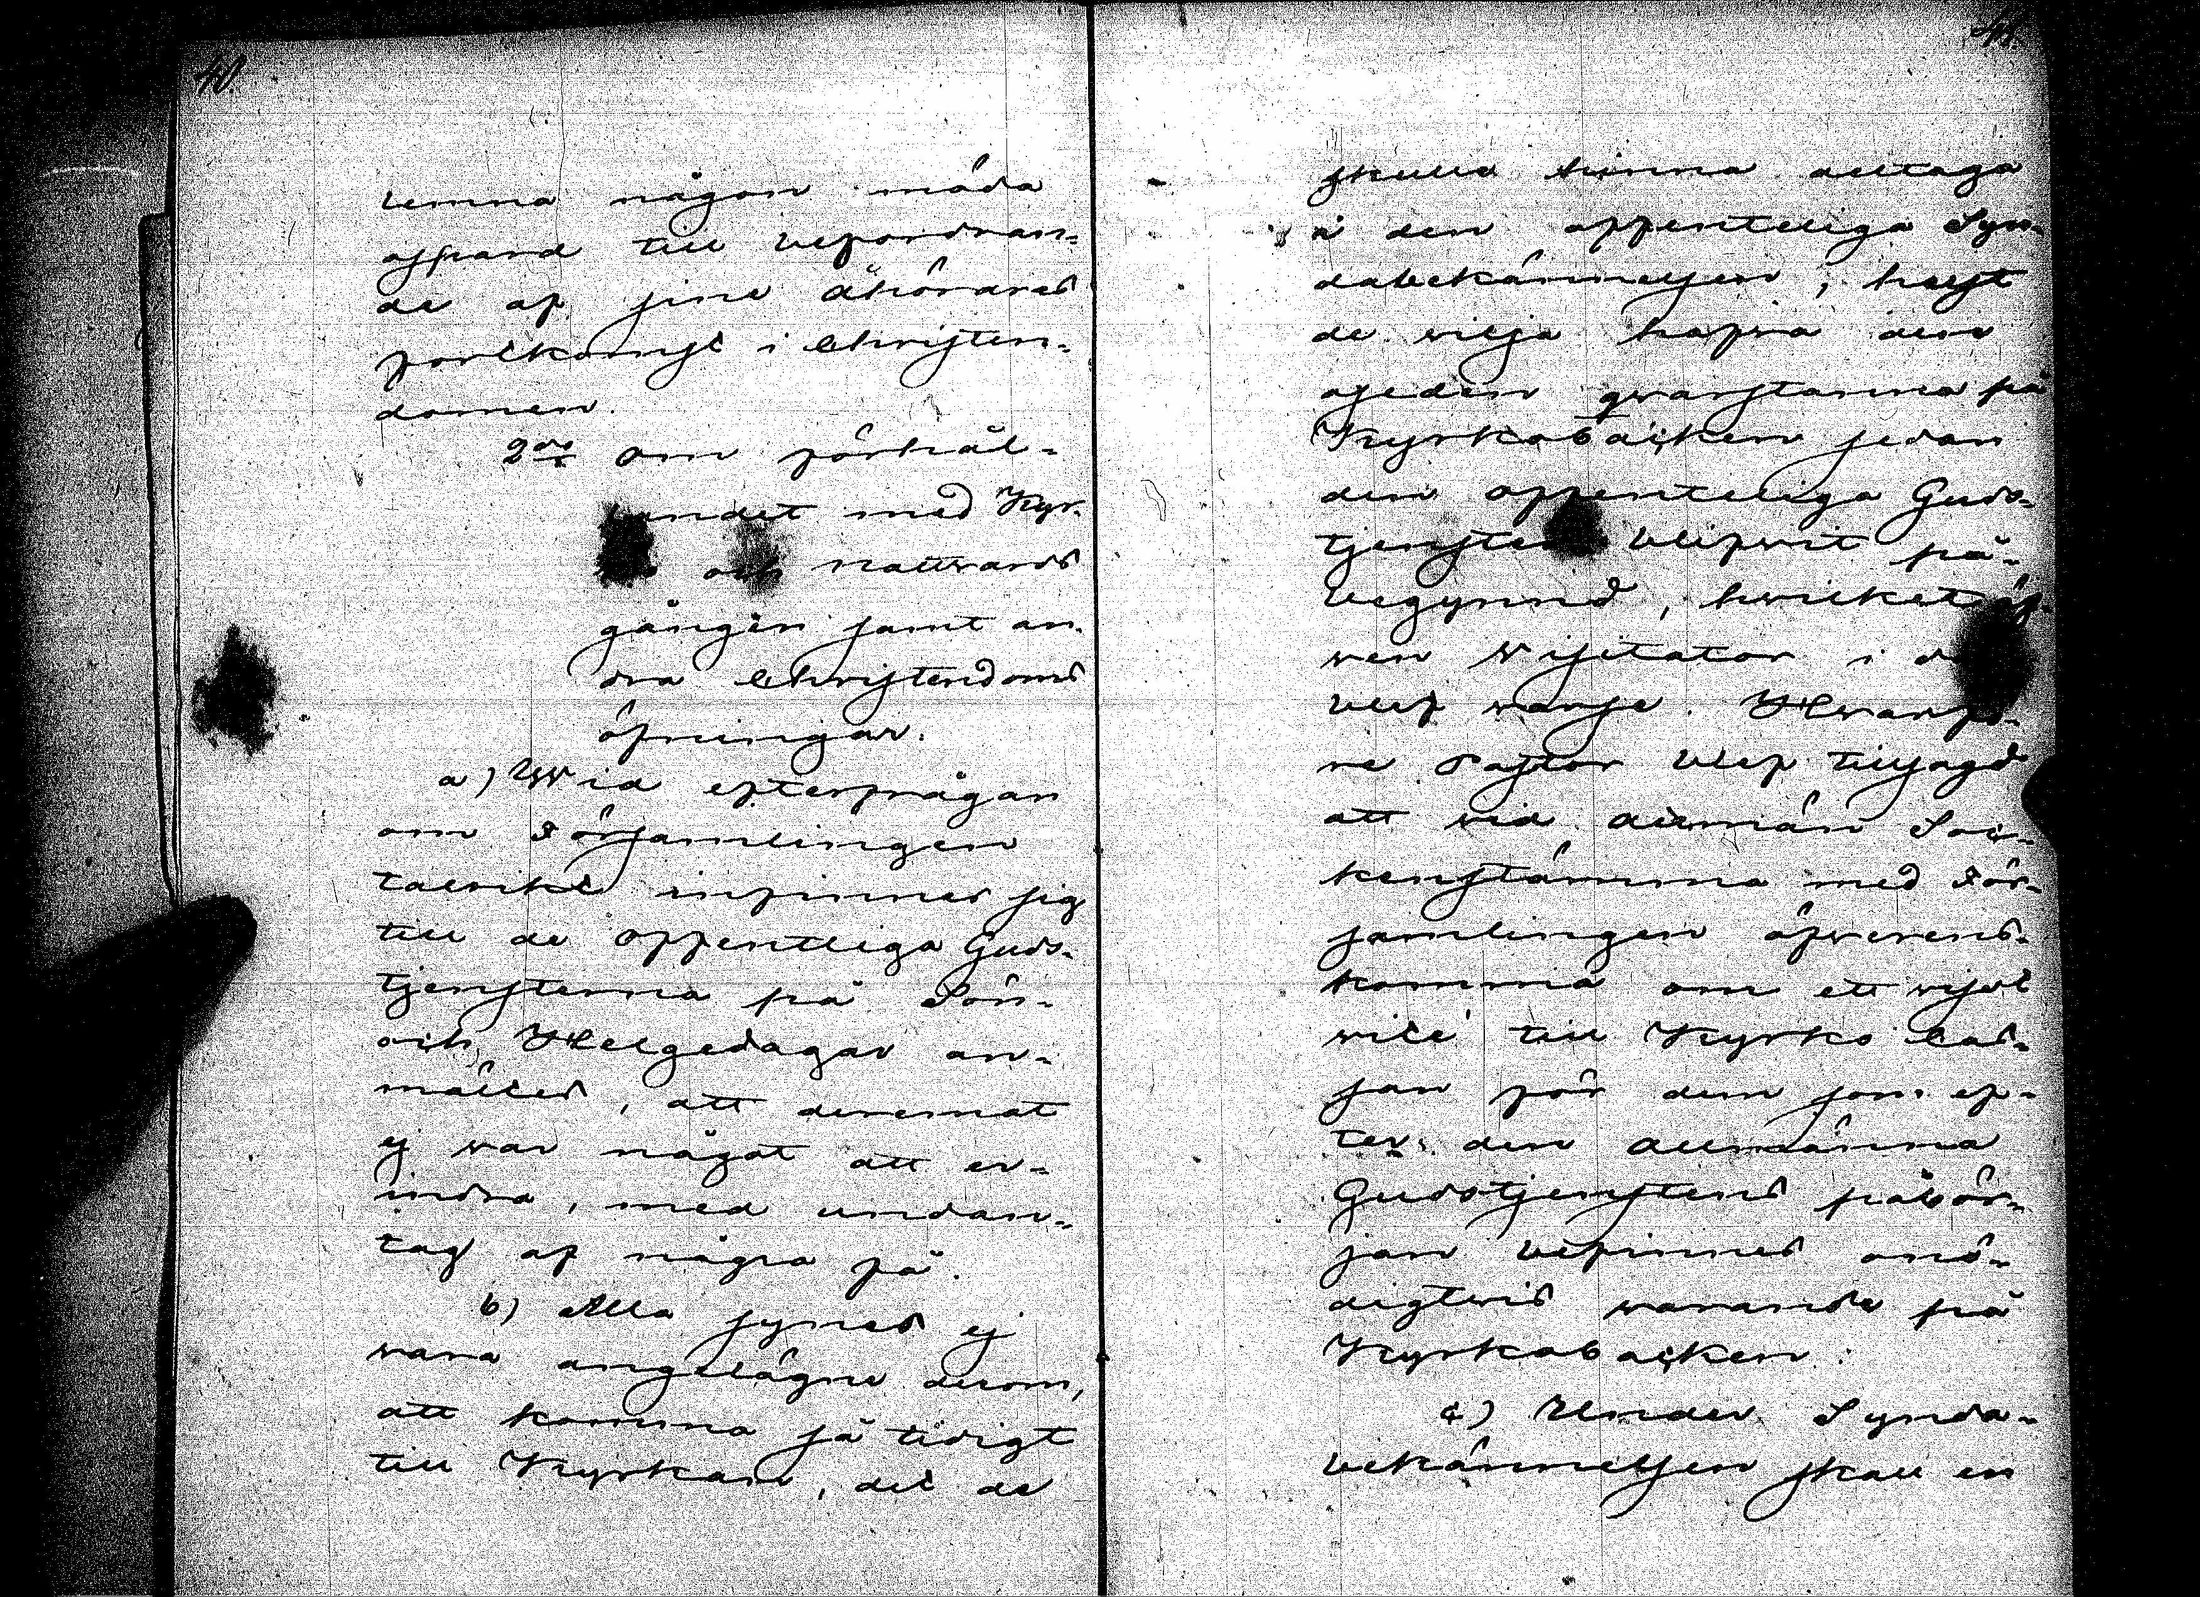 40.
lemna någon möda
ospard till befordran-
de af sine åhörares
förkofring i Christen-
domen.
2do Om förhål-
andet med Kyr-
och nattvards
gången samt an-
dra Christendoms
öfningar.
a) Wid efterfrågan
om Församlingen
talrikt infinner sig
till de offentliga Guds-
tjensterna på Sön-
och Helgedagar an-
mältes, att deremot
ej war något att er-
indra, med undan-
tag af några få.
b) Alla synes ej
wara angelägne derom,
att komma så tidigt
till Kyrkan, att de
41.
skulle hinna deltaga
i den offenteliga Syn-
dabekännelsen; helst
de wilja hafwa den
oseden qwarstanna på
Kyrkobacken sedan
den offenteliga Guds-
tjensten blifwit på-
begynnd, hwilket äf-
wen Visitator i
blef warse. Hwarfö-
re Pastor blef tillsagd
att wid allmän Soc-
kenstämma med För-
samlingen öfwerens-
komma om ett wisst
wite till Kyrko Cas-
san för dem som ef-
ter den allmänna
Gudstjenstens påbör-
jan befinnes onö-
digtwis warande på
Kyrkobacken.
c) Under Synda-
bekännelsen skall en